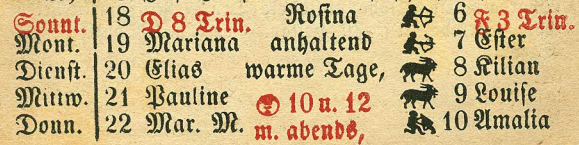 Sonnt. 18 D 8 Trin. Rosina 6 F 3 Trin.
Mont. 19 Mariana anhaltend 7 Ester
Dienst. 20 Elias warme Tage, 8 Kilian
Mittw. 21 Pauline 10 u. 12 9 Louise
Donn. 22 Mar. M. m. abends, 10 Amalia